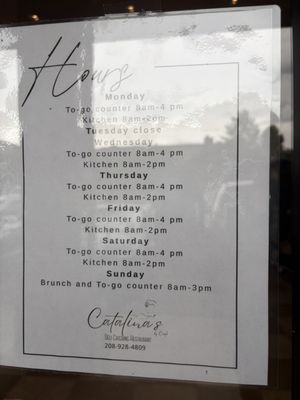 Hours
Monday
To-go counter 8am-4 pm
Kitchen 8am-2pm
Tuesday close
Wednesday
To-go counter 8am-4 pm
Kitchen 8am-2pm
Thursday
To-go counter 8am-4 pm
Kitchen 8am-2pm
Friday
To-go counter 8am-4 pm
Kitchen 8am-2pm
Saturday
To-go counter 8am-4 pm
Kitchen 8am-2pm
Sunday
Brunch and To-go counter 8am-3pm
Catalina's
Deli Catering Restaurant
208-928-4809